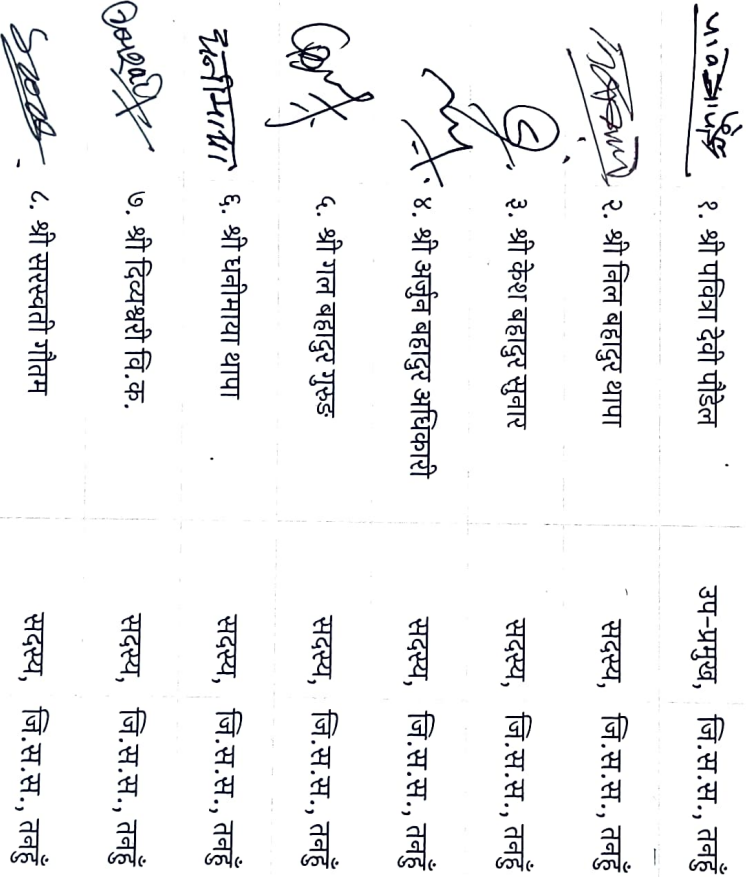 १. श्री पवित्रा देवी पौडेल उप-प्रमुख, जि.स.स., तनहुँ
२. श्री निल बहादुर थापा सदस्य, जि.स.स., तनहुँ
३. श्री केश बहादुर सुनार सदस्य, जि.स.स., तनहुँ
४. श्री अर्जुन बहादुर अधिकारी सदस्य, जि.स.स., तनहुँ
५. श्री गल बहादुर गुरुङ सदस्य, जि.स.स., तनहुँ
६. श्री धनीमाया थापा सदस्य, जि.स.स., तनहुँ
७. श्री दिव्यश्वरी वि.क. सदस्य, जि.स.स., तनहुँ
८. श्री सरस्वती गौतम सदस्य, जि.स.स., तनहुँ